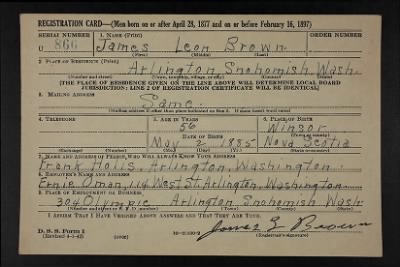 REGISTRATION CARD—(Men born on or after April 28, 1877 and on or before February 16, 1897)
SERIAL NUMBER 1. NAME (Print) ORDER NUMBER
U 866 James Leon Brown
(First) (Middle) (Last)
2. PLACE OF RESIDENCE (Print)
Arlington Snohomish Wash.
(Number and street) (Town, township, village, or city) (County) (State)
[THE PLACE OF RESIDENCE GIVEN ON THE LINE ABOVE WILL DETERMINE LOCAL BOARD
JURISDICTION; LINE 2 OF REGISTRATION CERTIFICATE WILL BE IDENTICAL]
3. MAILING ADDRESS
Same.
[Mailing address if other than place indicated on line 2. If same insert word same]
4. TELEPHONE 5. AGE IN YEARS 6. PLACE OF BIRTH
56 Winsor
DATE OF BIRTH (Town or county)
May 2 1885 Nova Scotia
(Exchange) (Number) (Mo.) (Day) (Yr.) (State or country)
7. NAME AND ADDRESS OF PERSON WHO WILL ALWAYS KNOW YOUR ADDRESS
Frank Holls, Arlington, Washington.
8. EMPLOYER'S NAME AND ADDRESS
Ernie Oman, 114 West St. Arlington, Washington
9. PLACE OF EMPLOYMENT OR BUSINESS
304 Olympic Arlington, Snohomish Wash
(Number and street or R. F. D. number) (Town) (County) (State)
I AFFIRM THAT I HAVE VERIFIED ABOVE ANSWERS AND THAT THEY ARE TRUE.
D. S. S. Form 1
(Revised 4-1-42) (over) James L Brown
(Registrant's signature)